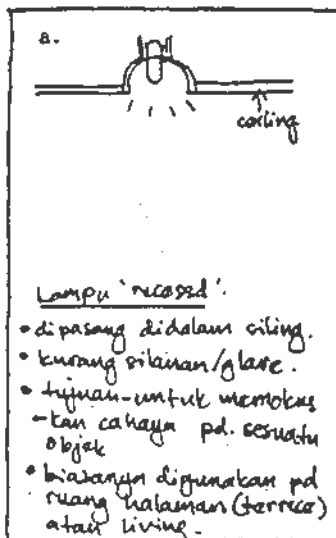 a.
ceiling
Lampu 'recessed'.
• dipasang didalam siling.
• kurang silauan/glare.
• tujuan-untuk memokus
-kan cahaya pd. sesuatu
objek
• biasanya digunakan pd
ruang halaman (terrace)
atau living.